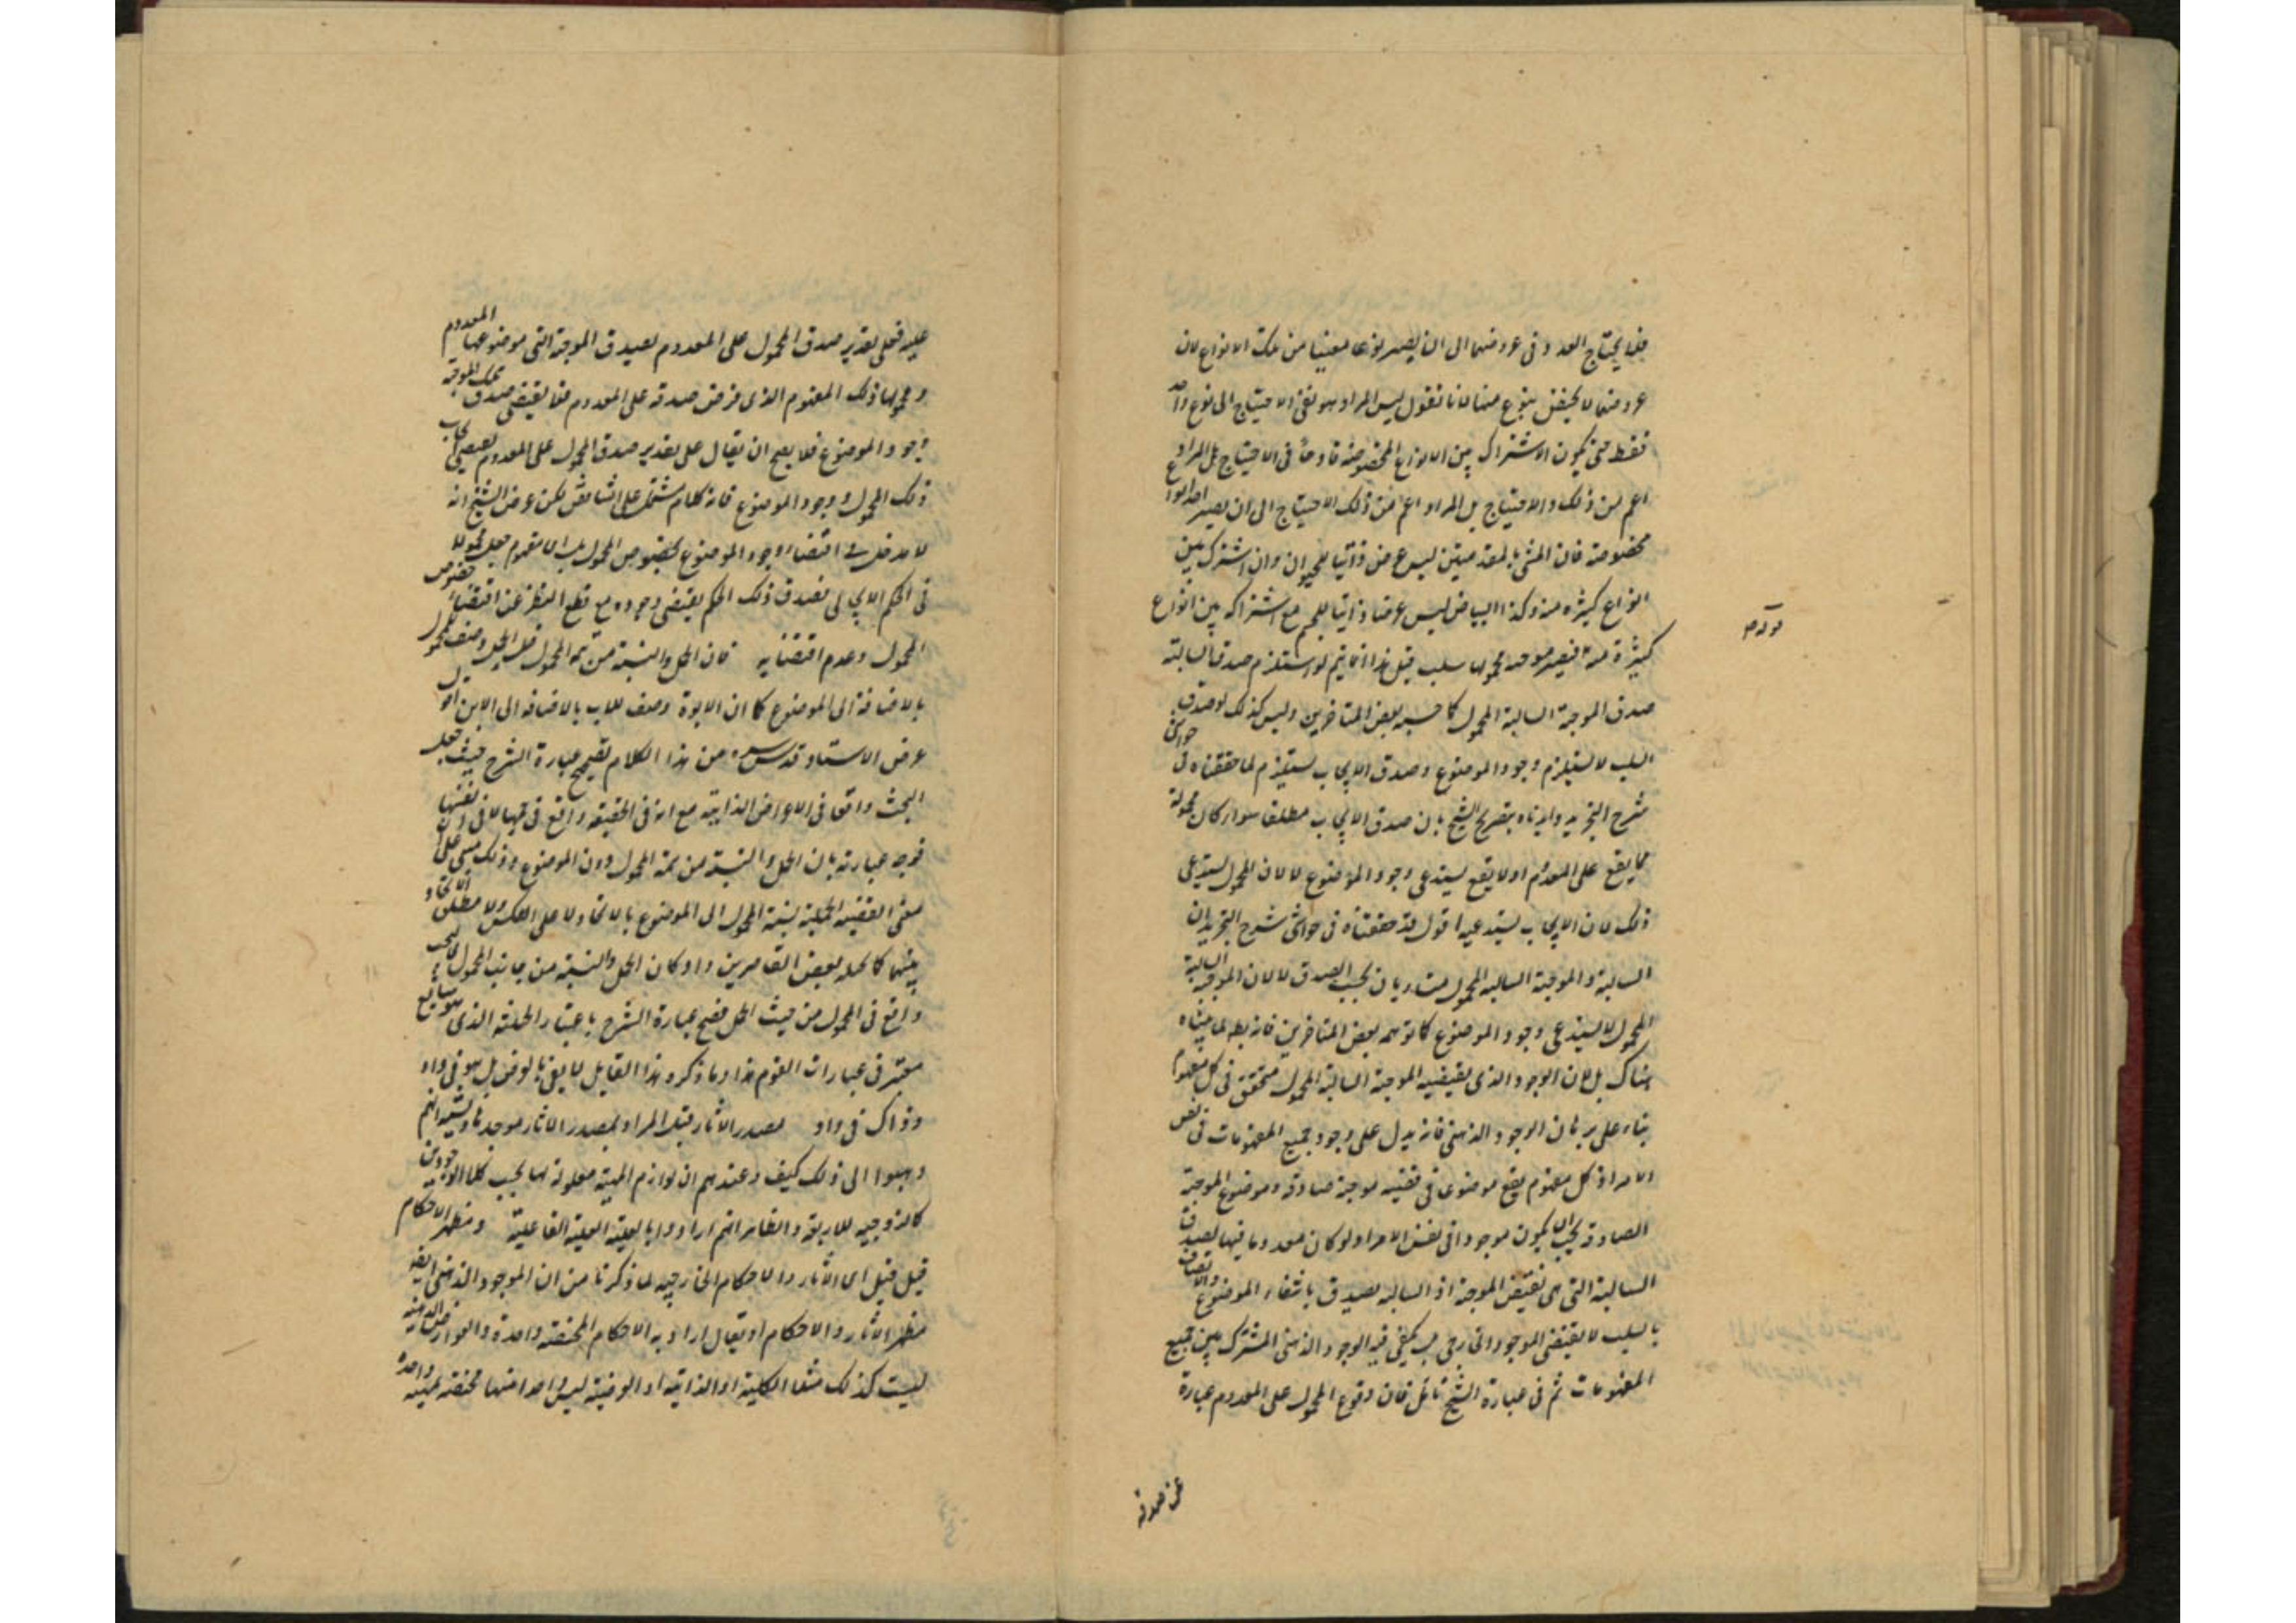 فلا يحتاج العدد فى عروضهما الى ان يصير نوعا معينا من تلك الانواع لان
عروضهما لا يختص بنوع منها لانا نقول ليس المراد هو نفى الاحتياج الى نوع واحد
فقط حتى يكون الاشتراك بين الانواع المخصوصة قادحا فى الاحتياج بل المراد
اعم من ذلك والاحتياج بل المراد اعم من ذلك الاحتياج الى ان يصير احد انواع
مخصوصة فان المشى بالمقدمتين ليس عرضا ذاتيا للحيوان وان اشترك بين
انواع كثيرة منه وكذا البياض ليس عرضا ذاتيا للجسم مع اشتراكه بين انواع
كثيرة منه فيصير موجبة محمولها سلب قيل هذا انما يتم لو استلزم صدق السالبة
صدق الموجبة السالبة المحمول كما حسبه بعض المتاخرين وليس كذلك لو صدق
السلب لا يستلزم وجود الموضوع وصدق الايجاب يستلزم لما حققناه فى حواشى
شرح التجريد وايدناه بتصريح الشيخ بان صدق الايجاب مطلقا سواء كان محموله
مما يقع على المعدوم او لا يقع يستدعى وجود الموضوع لا لان المحمول يستدعى
ذلك لان الايجاب يستدعيه اقول قد حققناه فى حواشى شرح التجريد ان
السالبة والموجبة السالبة المحمول متساويان بحسب الصدق لا لان الموجبة السالبة
المحمول لا يستدعى وجود الموضوع كما توهمه بعض المتاخرين فانه بط لما بيناه
هناك بل لان الوجود الذى يقتضيه الموجبة السالبة المحمول متحقق فى كل مفهوم
بناء على برهان الوجود الذهنى فانه يدل على وجود جميع المفهومات فى نفس
الامر اذ كل مفهوم يقع موضوعا فى قضية موجبة صادقة وموضوع الموجبة
الصادقة يجب ان يكون موجودا فى نفس الامر اذ لو كان معدوما فيها لصدق
السالبة التى هى نقيض الموجبة اذ السالبة يصدق بانتفاء الموضوع والاتصاف
بالسلب لا يقتضى الوجود الخارجى بل يكفى فيه الوجود الذهنى المشترك بين جميع
المفهومات ثم فى عبارة الشيخ تامل فان وقوع المحمول على المعدوم عبارة
عن صدقه
عليه فعلى تقدير صدق المحمول على المعدوم يصدق الموجبة التى موضوعها المعدوم
ومحمولها ذلك المفهوم الذى فرض صدقه على المعدوم فلا يقتضى صدق تلك الموجبة
وجود الموضوع فلا يصح ان يقال على تقدير صدق المحمول على المعدوم يقتضى ايجاب
ذلك المحمول وجود الموضوع فانه كلام مشتمل على التناقض لكن غرض الشيخ انه
لا مدخل فى اقتضاء وجود الموضوع لخصوص المحمول بل اى مفهوم جعل محمولا
فى الحكم الايجابى فصدق ذلك الحكم يقتضى وجوده مع قطع النظر عن اقتضاء خصوص
المحمول وعدم اقتضائه فان الحمل والنسبة من تتمة المحمول قيل الحمل وصف للمحمول
بالاضافة الى الموضوع كما ان الابوة وصف للاب بالاضافة الى الابن اقول
غرض الاستاد قدس سره من هذا الكلام تصحيح عبارة الشرح حيث جعل
البحث واقعا فى الاعراض الذاتية مع انه فى الحقيقة واقع فى حملها لا فى نفسها
فوجه عبارته بان الحمل والنسبة من تتمة المحمول دون الموضوع وذلك مبنى على ان
معنى القضية الحملية نسبة المحمول الى الموضوع بالاتحاد لا على العكس ولا مطلق الاتحاد
بينهما كما تخيله بعض القاصرين واذ كان الحمل والنسبة من جانب المحمول فالبحث
واقع فى المحمول من حيث الحمل فصح عبارة الشرح باعتبار الحيثية الذى هو شايع
معتبر فى عبارات القوم هذا وما ذكره هذا القايل لا يفى بالغرض بل هو فى واد
وذاك فى واد مصدر الاثار قيل المراد بمصدر الاثار موجدها ولا يشتبه انهم
ذهبوا الى ذلك كيف وعندهم ان لوازم المهية معلولة لها بحسب كلا الوجودين
كالزوجية للاربعة والظاهر انهم ارادوا بالعلية العلية الفاعلية ومظهر الاحكام
قيل قيل اى الاثار والاحكام الخارجية لما ذكرنا من ان الموجود الذهنى ايضا
مظهر الاثار والاحكام او يقال اراد به الاحكام المختصة واحدة والعوارض الذهنية
ليست كذلك مثلا الكلية او الذاتية او العرضية ليس واحد منها مختصة بمهية واحدة